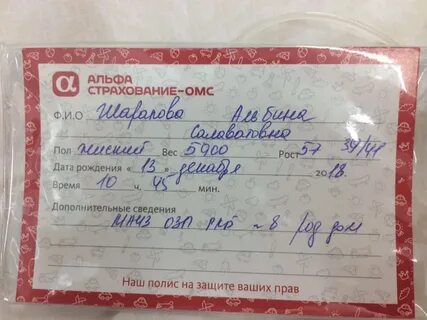 АЛЬФА
СТРАХОВАНИЕ–ОМС
Ф.И.О Шарапова Альбина
Салаватовна
Пол женский Вес 5900 Рост 57 39/41
Дата рождения «13» декабря 2018.
Время 10 ч. 45 мин.
Дополнительные сведения
род дом
Наш полис на защите ваших прав